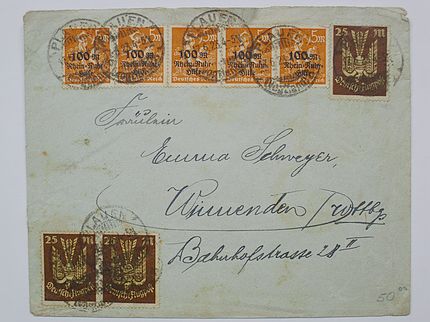 PLAUEN
PLAUEN
5M 5M 5M 5M 5M
100 M 100 M 100 M 100 M 100 M
Rhein-Ruhr- Rhein-Ruhr- Rhein-Ruhr- Rhein-Ruhr- Rhein-Ruhr-
Hilfe Hilfe Hilfe Hilfe Hilfe
25 M
Deutsche Flugpost
Fräulein
Emma Schweyer,
Winnenden
Bahnhofstrasse 28 II
PLAUEN
25 M 25 M
Deutsche Flugpost Deutsche Flugpost
50